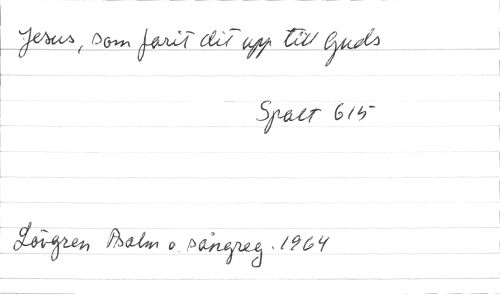 Jesus, som farit dit upp till Guds
Spalt 615
Lövgren Psalm o. sångreg. 1964